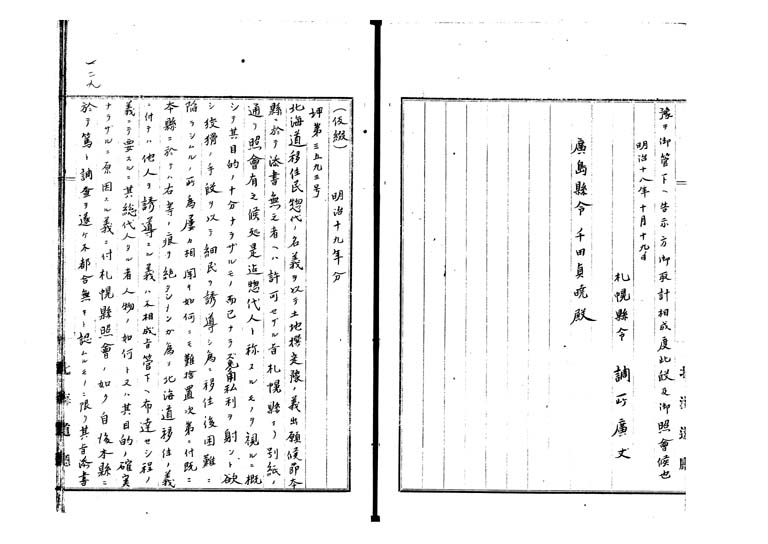 豫ヲ御管下ヘ告示方御取計相成度此段及御照會候也
明治十八年十月十九日
札幌縣令 調所廣丈
廣島縣令千田貞暁殿
北海道廳
一二九
(仮綴) 明治十九年分
坤第三五九三号
北海道移住民惣代ノ名義ヲ以テ土地撰定豫ノ義出願候節本
縣ニ於テ添書無之者ヘハ許可セザル旨札幌縣ヨリ別紙ノ
通リ照會有之候処是迠惣代人ト称スルモノヲ視ルニ概
シテ其目的ノ十分ナラザルモノ而已ナラズ兎角私利ヲ射ント欲
シ狡猾ノ手段ヲ以テ細民ヲ誘導シ為ニ移住後困難ニ
陥ラシムルノ所為屢々相聞キ如何ニモ難捨置次第ニ付既ニ
本縣ニ於テハ右等ノ痕ヲ絶タシメンカ為メ北海道移住ノ義
ニ付テハ他人ヲ誘導スル義ハ不相成旨管下ヘ布達セシ程ノ
義ニテ要スルニ其総代人タル者人物ノ如何ト又ハ其目的ノ確実
ナラザルニ原因スル義ニ付札幌縣照會ノ如ク自後本縣ニ
於テ篤ト調査ヲ遂ケ不都合無キト認ムルモノニ限リ其旨添書
北海道廳